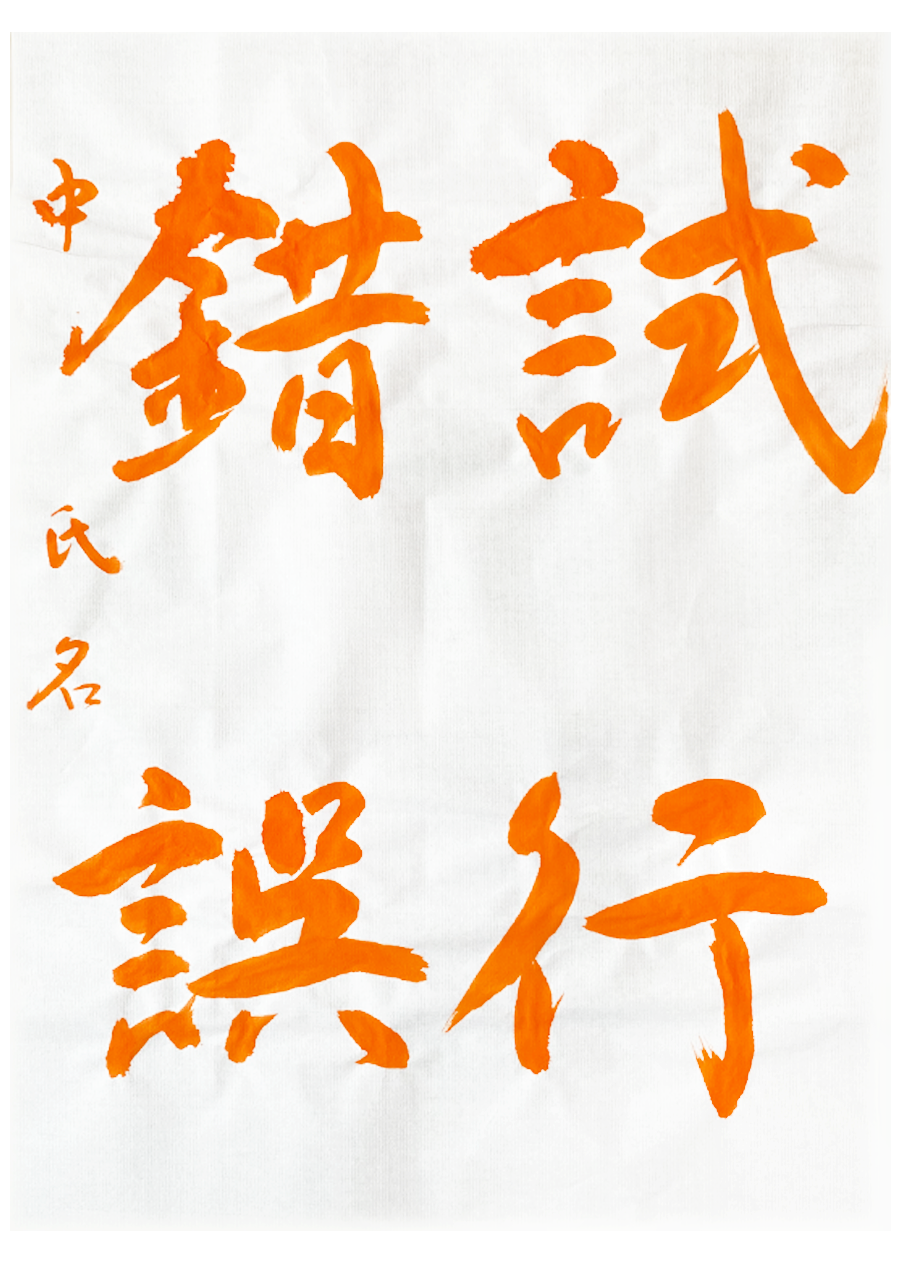 試行
錯誤
中氏名